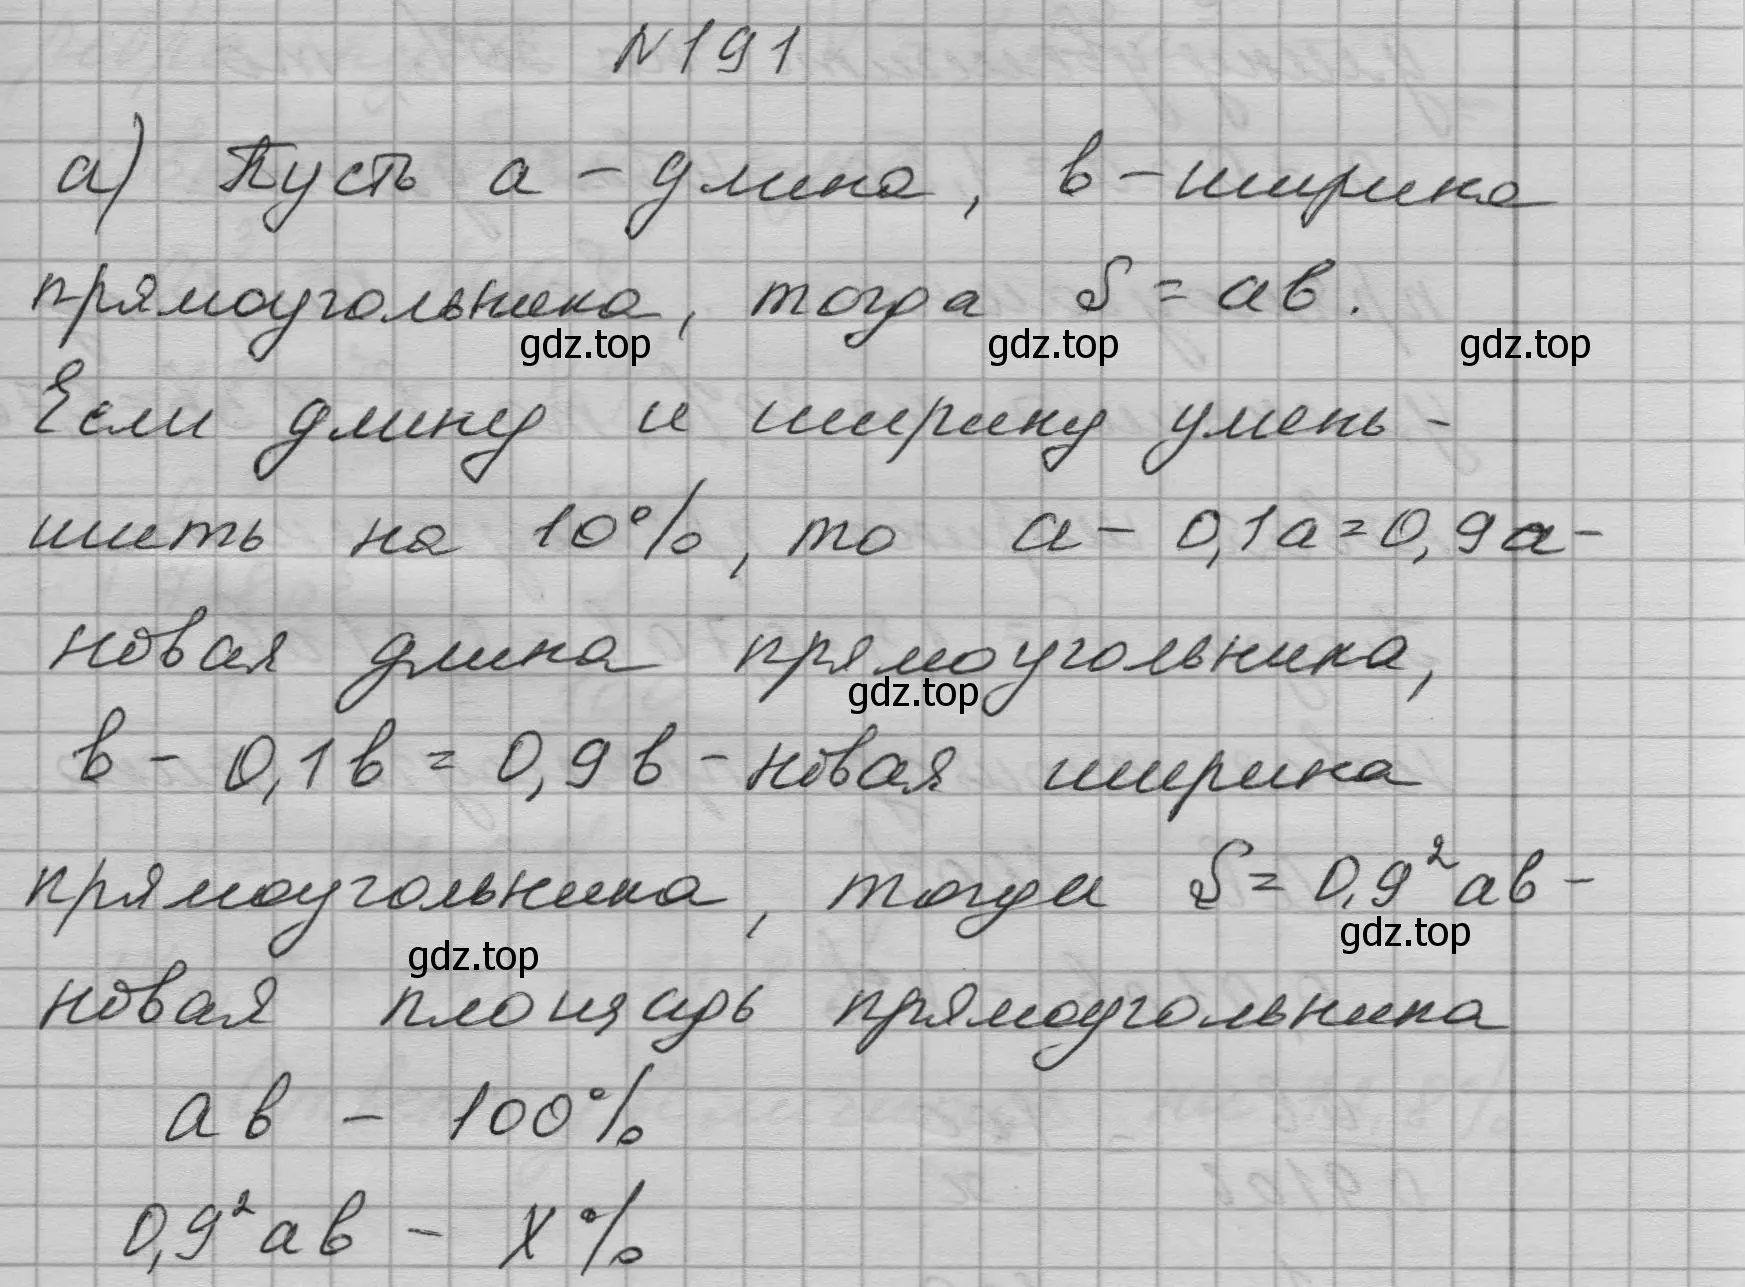 №191
а) Пусть a - длина, в - ширина
прямоугольника, тогда S = ав.
gdz.top gdz.top gdz.top
Если длину и ширину умень-
шить на 10%, то a - 0,1a = 0,9a -
новая длина прямоугольника,
gdz.top
в - 0,1в = 0,9в - новая ширина
прямоугольника, тогда S = 0,9²ав -
gdz.top gdz.top
новая площадь прямоугольника
ав - 100%
0,9²ав - x%